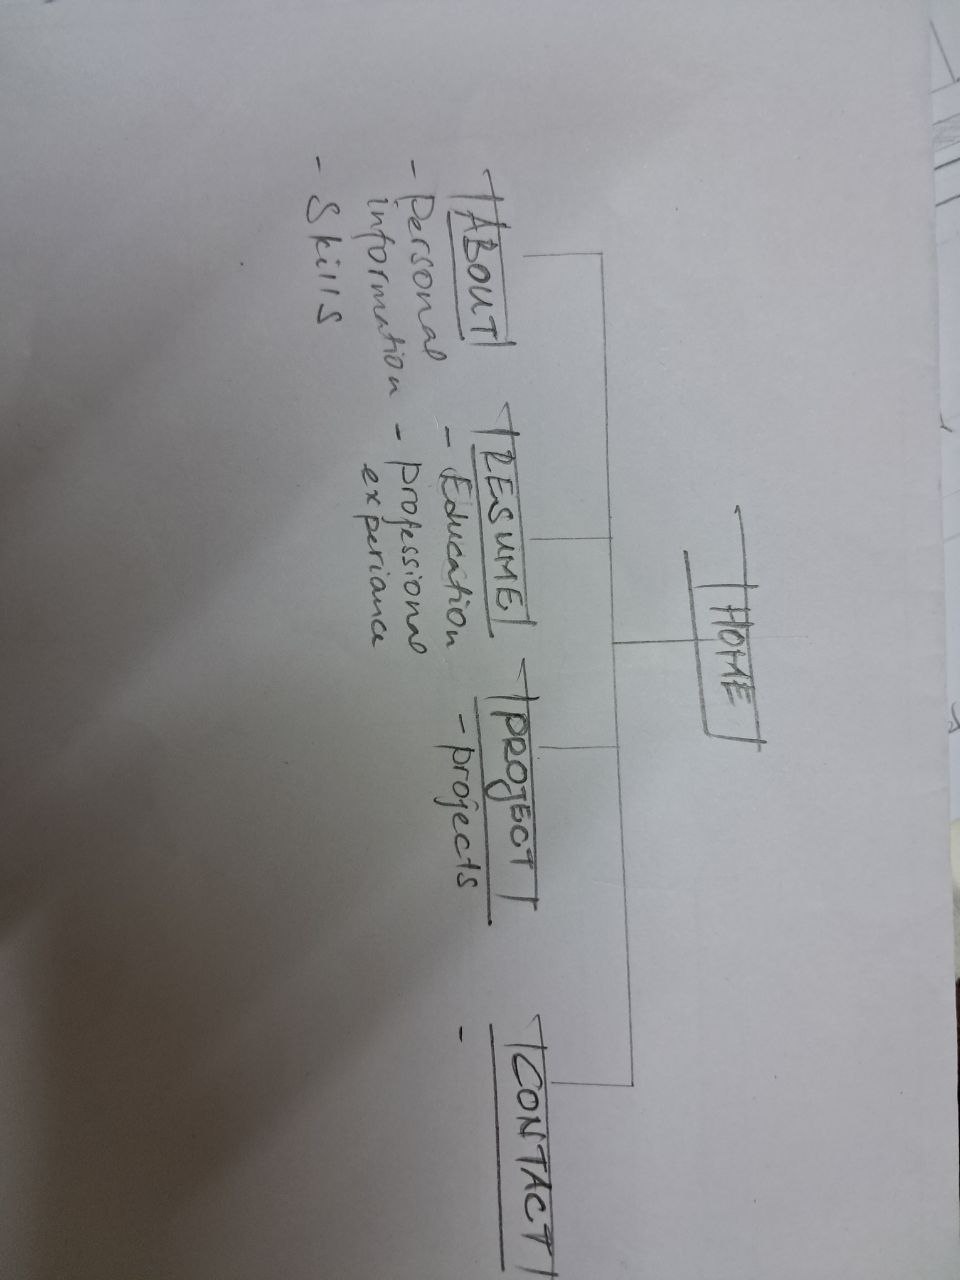 HOME
ABOUT
- personal
information
- Skills
RESUME
- Education
- professional
experiance
PROJECT
- projects
CONTACT
-